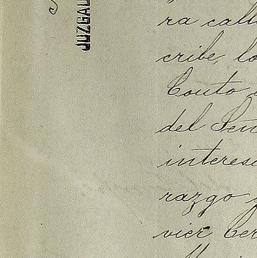 JUZGAD
ra call
cribe, lo
Couto
del Señ
interes
razgo y
vier Cer